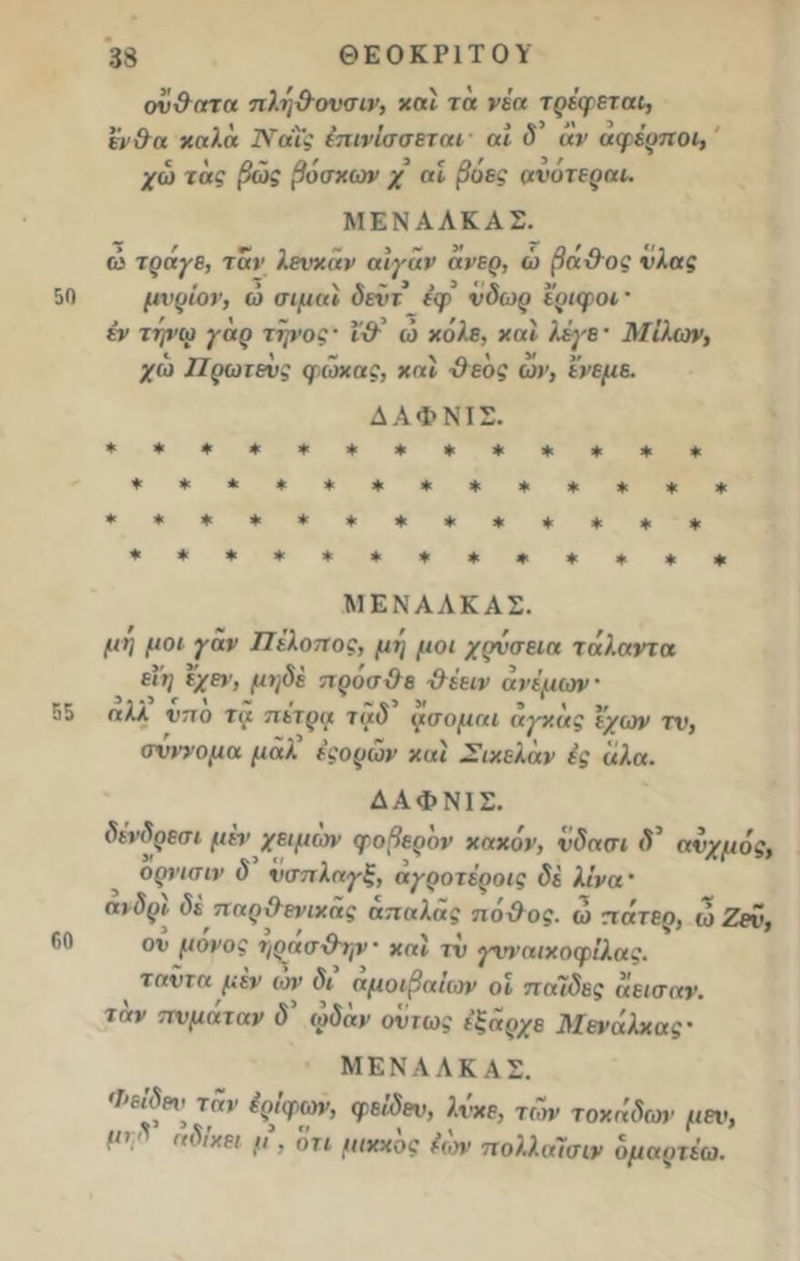 38 ΘΕΟΚΡΙΤΟΥ
οὔθατα πλήθουσιν, καὶ τὰ νέα τρέφεται,
ἔνθα καλὰ Ναῒς ἐπινίσσεται· αἰ δ’ ἂν ἀφέρποι,
χὠ τὰς βῶς βόσκων χ’ αἱ βόες αὐότεραι.
ΜΕΝΑΛΚΑΣ.
ὦ τράγε, τᾶν λευκᾶν αἰγᾶν ἄνερ, ὦ βάθος ὕλας
50 μυρίον, ὦ σιμαὶ δεῦτ’ ἐφ’ ὕδωρ ἔριφοι·
ἐν τήνῳ γὰρ τῆνος· ἴθ’ ὦ κόλε, καὶ λέγε· Μίλων,
χὠ Πρωτεὺς φώκας, καὶ θεὸς ὤν, ἔνεμε.
ΔΑΦΝΙΣ.
* * * * * * * * * * * * *
* * * * * * * * * * * * *
* * * * * * * * * * * * *
* * * * * * * * * * * * *
ΜΕΝΑΛΚΑΣ.
μή μοι γᾶν Πέλοπος, μή μοι χρύσεια τάλαντα
εἴη ἔχεν, μηδὲ πρόσθε θέειν ἀνέμων·
55 ἀλλ’ ὑπὸ τᾷ πέτρᾳ τᾷδ’ ᾄσομαι ἀγκὰς ἔχων τυ,
σύννομα μᾶλ’ ἐςορῶν καὶ Σικελὰν ἐς ἅλα.
ΔΑΦΝΙΣ.
δένδρεσι μὲν χειμὼν φοβερὸν κακόν, ὕδασι δ’ αὐχμός,
ὄρνισιν δ’ ὕσπλαγξ, ἀγροτέροις δὲ λίνα·
ἀνδρὶ δὲ παρθενικᾶς ἁπαλᾶς πόθος. ὦ πάτερ, ὦ Ζεῦ,
60 οὐ μόνος ἠράσθην· καὶ τὺ γυναικοφίλας.
ταῦτα μὲν ὦν δι’ ἀμοιβαίων οἱ παῖδες ἄεισαν.
τὰν πυμάταν δ’ ᾠδὰν οὕτως ἐξᾶρχε Μενάλκας·
ΜΕΝΑΛΚΑΣ.
Φείδευ τᾶν ἐρίφων, φείδευ, λύκε, τῶν τοκάδων μευ,
μηδ’ ἀδίκει μ’, ὅτι μικκὸς ἐὼν πολλαῖσιν ὁμαρτέω.